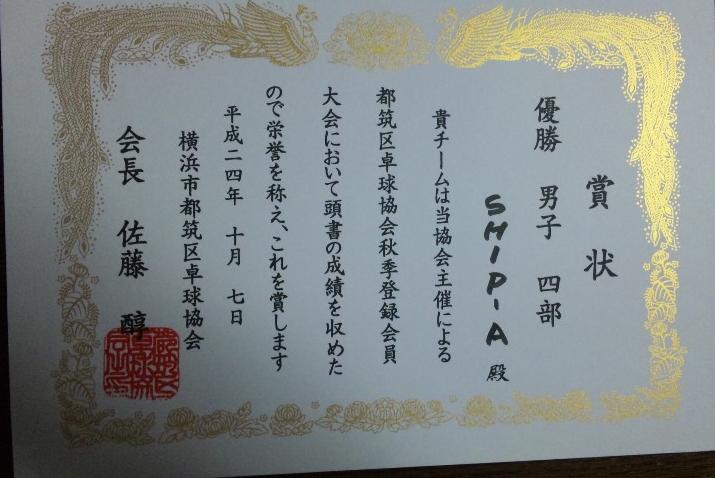 賞状
優勝 男子 四部
SHIP-A 殿
貴チームは当協会主催による
都筑区卓球協会秋季登録会員
大会において頭書の成績を収めた
ので栄誉を称え、これを賞します
平成二四年 十月 七日
横浜市都筑区卓球協会
会長 佐藤 醇